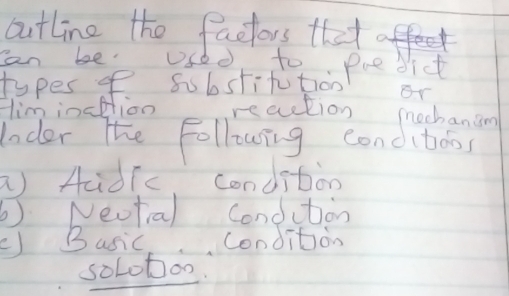 outline the factors that affect
can be used to predict
types of substitution or
Elimination reaction mechanism
Under the following conditions
a) Acidic condition
b) Neutral condition
c) Basic condition
solution.